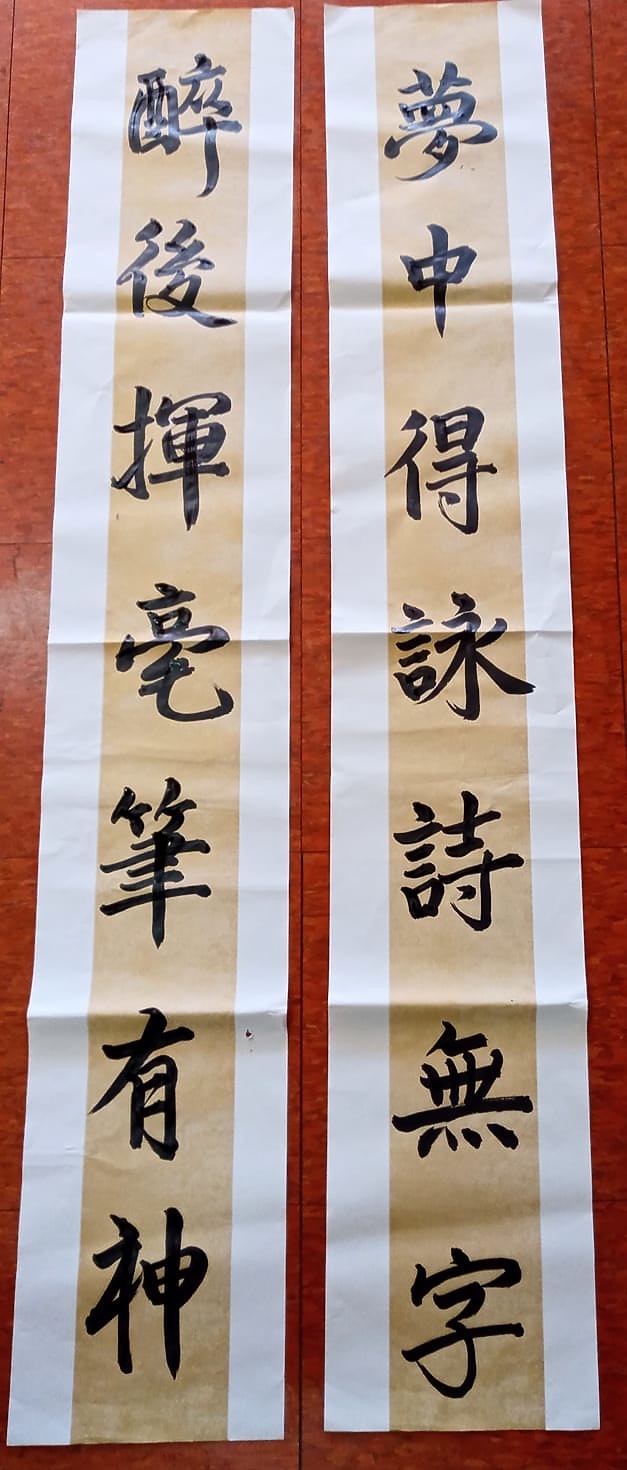 夢中得詠詩無字
醉後揮毫筆有神